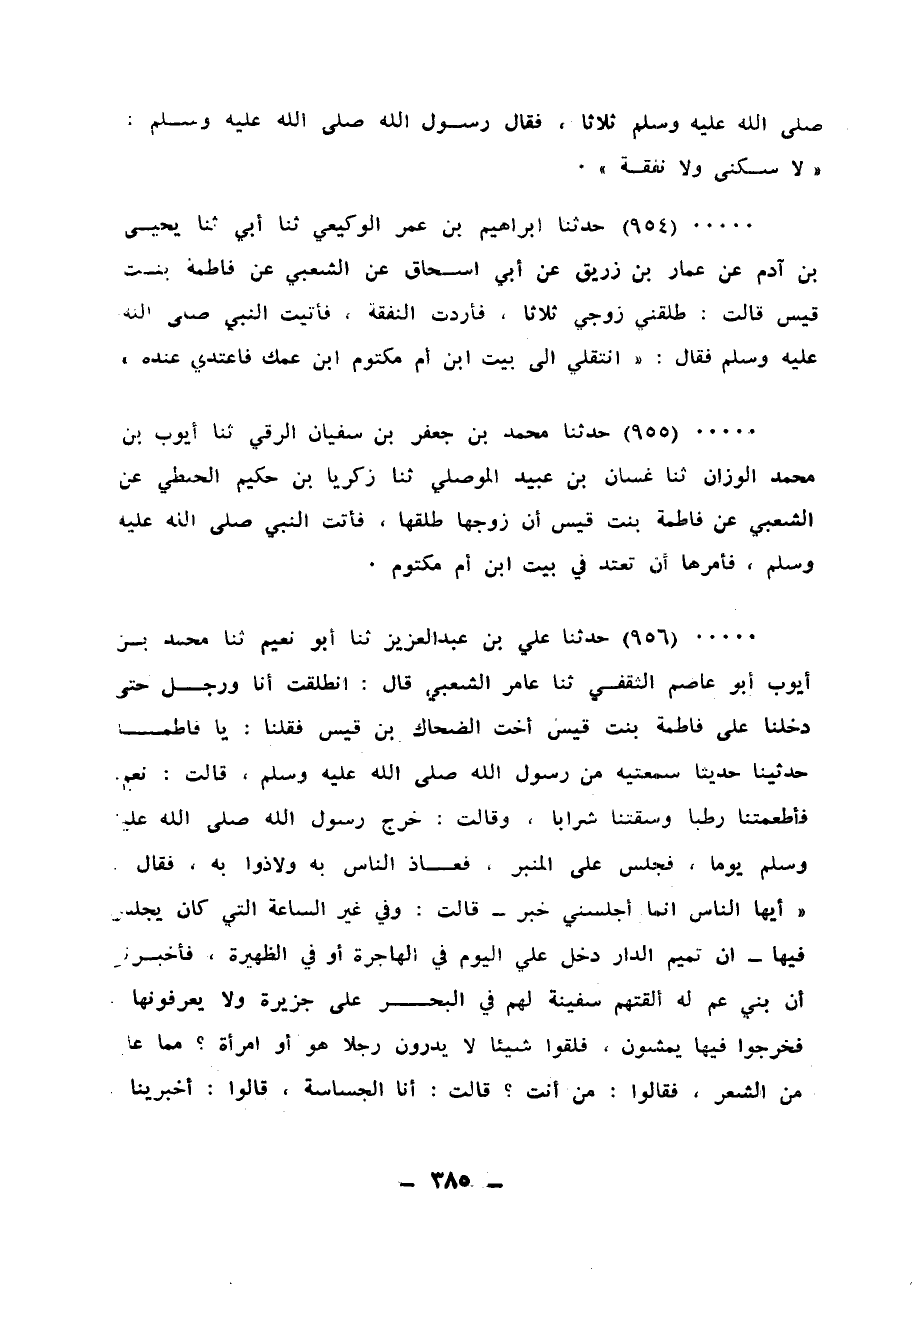 صلى الله عليه وسلم ثلاثا ، فقال رسول الله صلى الله عليه وسلم :
« لا سكنى ولا نفقة » ٠
٠٠٠٠٠ (٩٥٤) حدثنا ابراهيم بن عمر الوكيعي ثنا أبي ثنا يحيى
بن آدم عن عمار بن زريق عن أبي اسحاق عن الشعبي عن فاطمة بنت
قيس قالت : طلقني زوجي ثلاثا ، فأردت النفقة ، فأتيت النبي صلى الله
عليه وسلم فقال : « انتقلي الى بيت ابن أم مكتوم ابن عمك فاعتدي عنده »
٠٠٠٠٠ (٩٥٥) حدثنا محمد بن جعفر بن سفيان الرقي ثنا أيوب بن
محمد الوزان ثنا غسان بن عبيد الموصلي ثنا زكريا بن حكيم الحبطي عن
الشعبي عن فاطمة بنت قيس أن زوجها طلقها ، فأتت النبي صلى الله عليه
وسلم ، فأمرها أن تعتد في بيت ابن أم مكتوم ٠
٠٠٠٠٠ (٩٥٦) حدثنا علي بن عبدالعزيز ثنا أبو نعيم ثنا محمد بن
أيوب أبو عاصم الثقفي ثنا عامر الشعبي قال : انطلقت أنا ورجل حتى
دخلنا على فاطمة بنت قيس أخت الضحاك بن قيس فقلنا : يا
حدثينا حديثا سمعتيه من رسول الله صلى الله عليه وسلم ، قالت : نعم
فأطعمتنا رطبا وسقتنا شرابا ، وقالت : خرج رسول الله صلى الله
وسلم يوما ، فجلس على المنبر ، فعاذ الناس به ولاذوا به ، فقال
« أيها الناس انما أجلسني خبر – قالت : وفي غير الساعة التي كان يجلس
فيها – ان تميم الدار دخل علي اليوم في الهاجرة أو في الظهيرة ،
أن بني عم له ألقتهم سفينة لهم في البحر على جزيرة ولا يعرفونها
فخرجوا فيها يمشون ، فلقوا شيئا لا يدرون رجلا هو أو امرأة ؟ مما
من الشعر ، فقالوا : من أنت ؟ قالت : أنا الجساسة ، قالوا : أخبرينا
– ٣٨٥ –